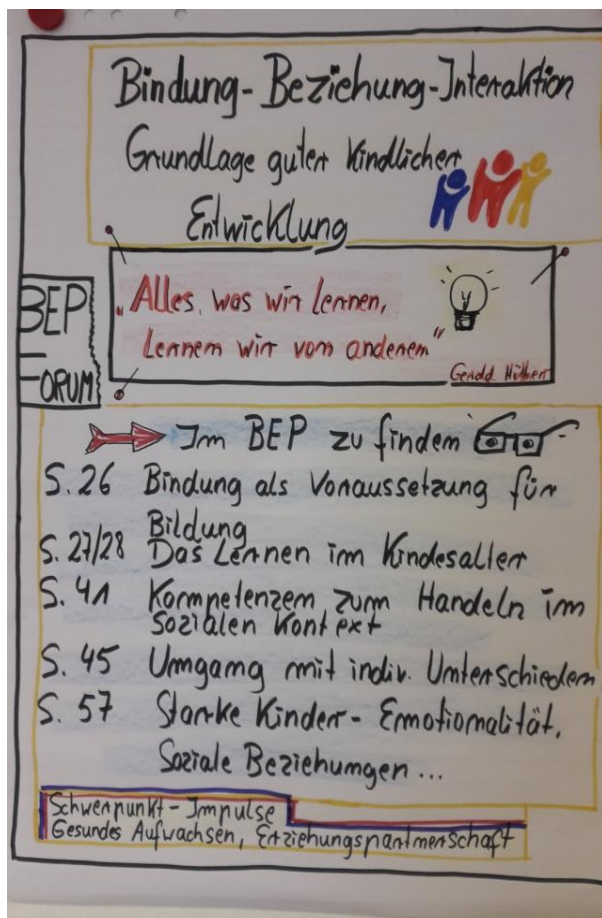 Bindung-Beziehung-Interaktion
Grundlage guter kindlicher
Entwicklung
BEP
FORUM
„Alles, was wir lernen,
lernen wir von anderen"
Gerald Hüther
Im BEP zu finden
S. 26 Bindung als Voraussetzung für
Bildung
S. 27/28 Das Lernen im Kindesalter
S. 41 Kompetenzen zum Handeln im
Sozialen Kontext
S. 45 Umgang mit indiv. Unterschieden
S. 57 Starke Kinder - Emotionalität,
Soziale Beziehungen ...
Schwerpunkt-Impulse
Gesundes Aufwachsen, Erziehungspartnerschaft